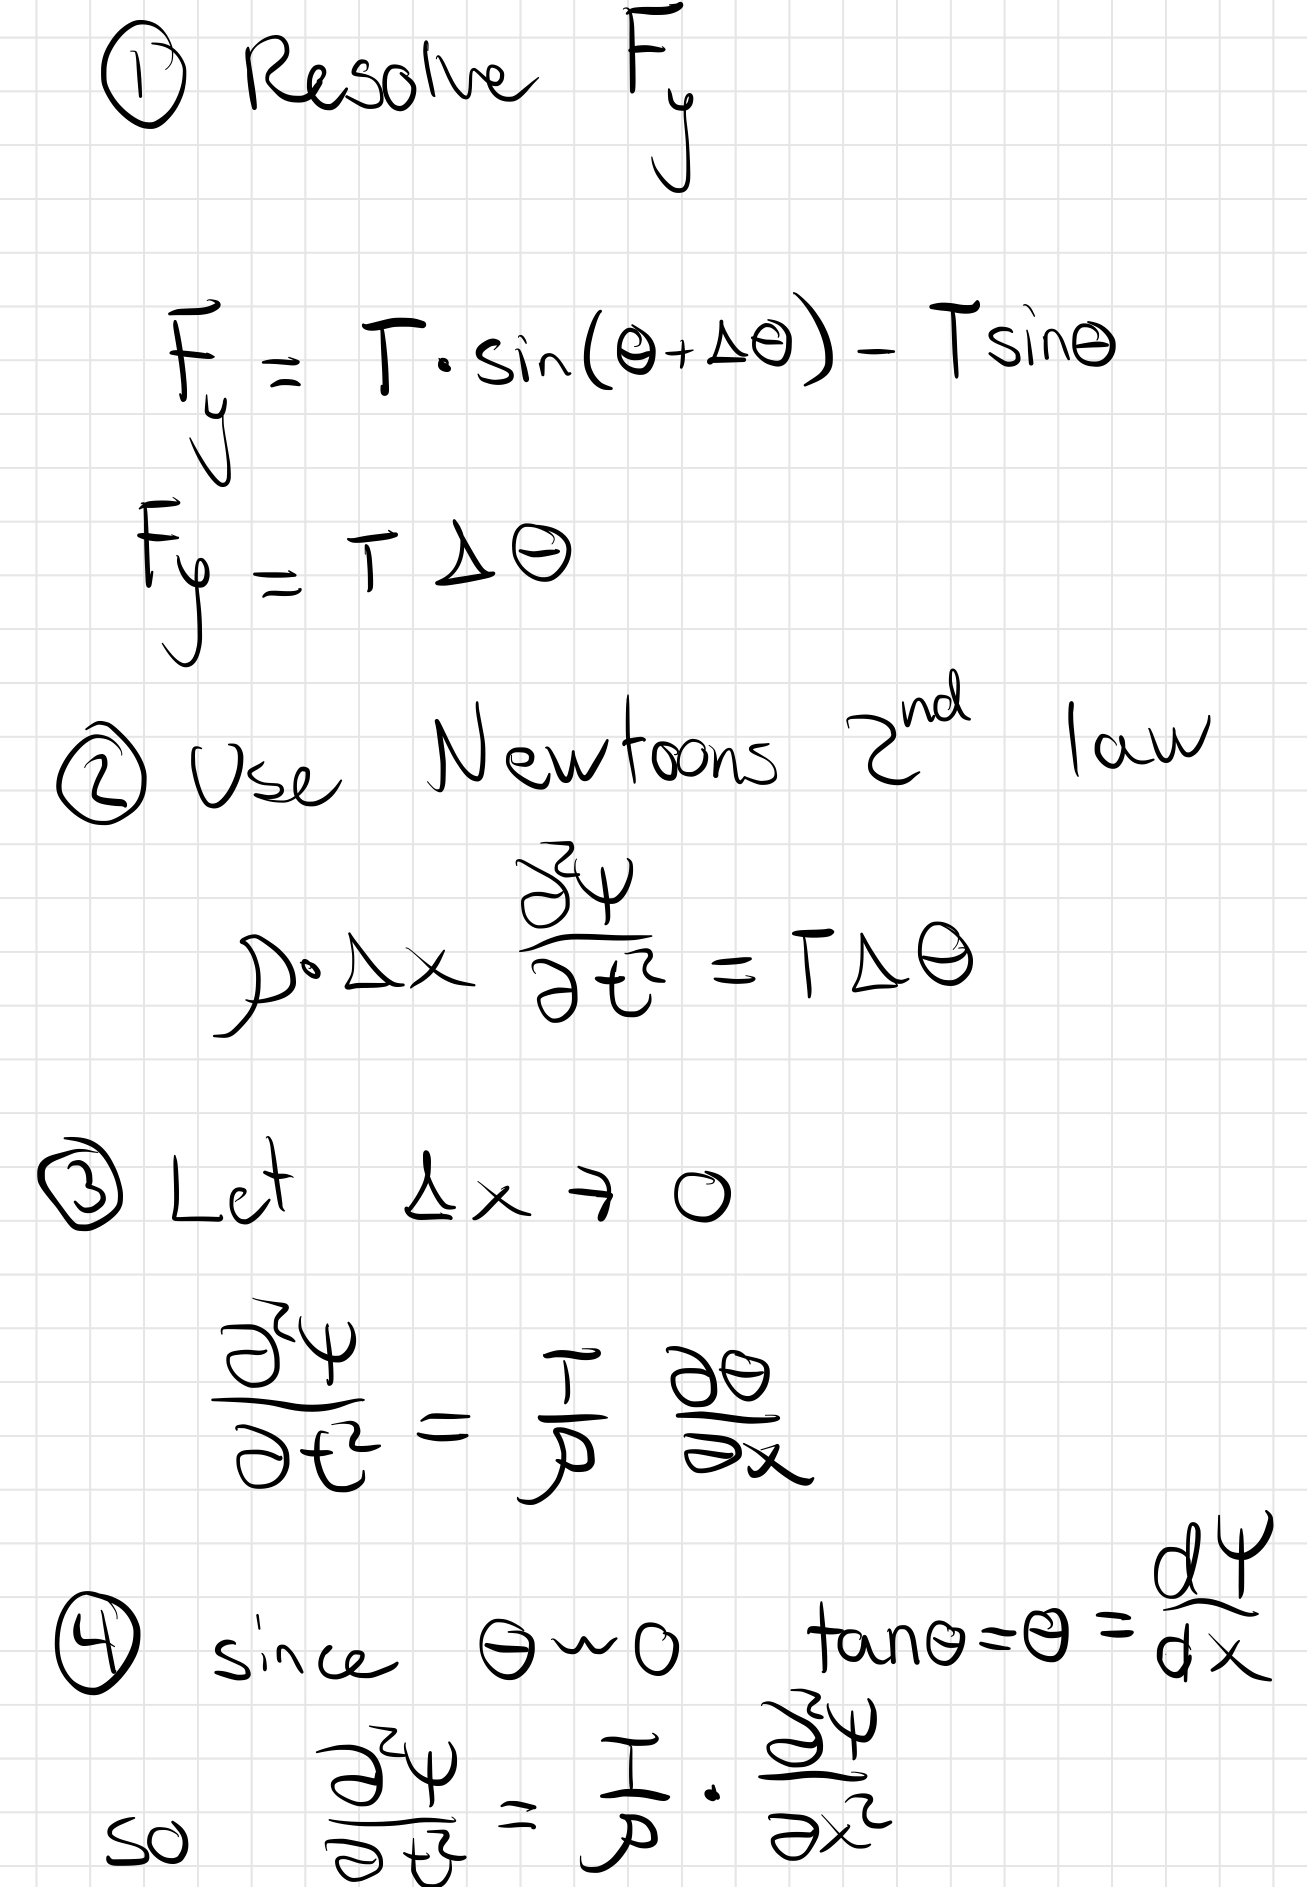 ① Resolve F_y
F_y = T · sin(θ + Δθ) − T sinθ
F_y = T Δθ
② Use Newtoons 2nd law
ρ · Δx ∂²ψ/∂t² = T Δθ
③ Let Δx → 0
∂²ψ/∂t² = T/ρ ∂θ/∂x
④ since θ ~ 0 tanθ = θ = dψ/dx
so ∂²ψ/∂t² = T/ρ · ∂²ψ/∂x²